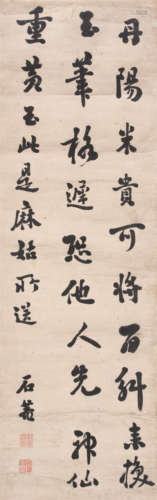 丹陽米貴可將百斛來換
玉筆格遲恐他人先神仙
重黃玉此是麻姑所送
石菴